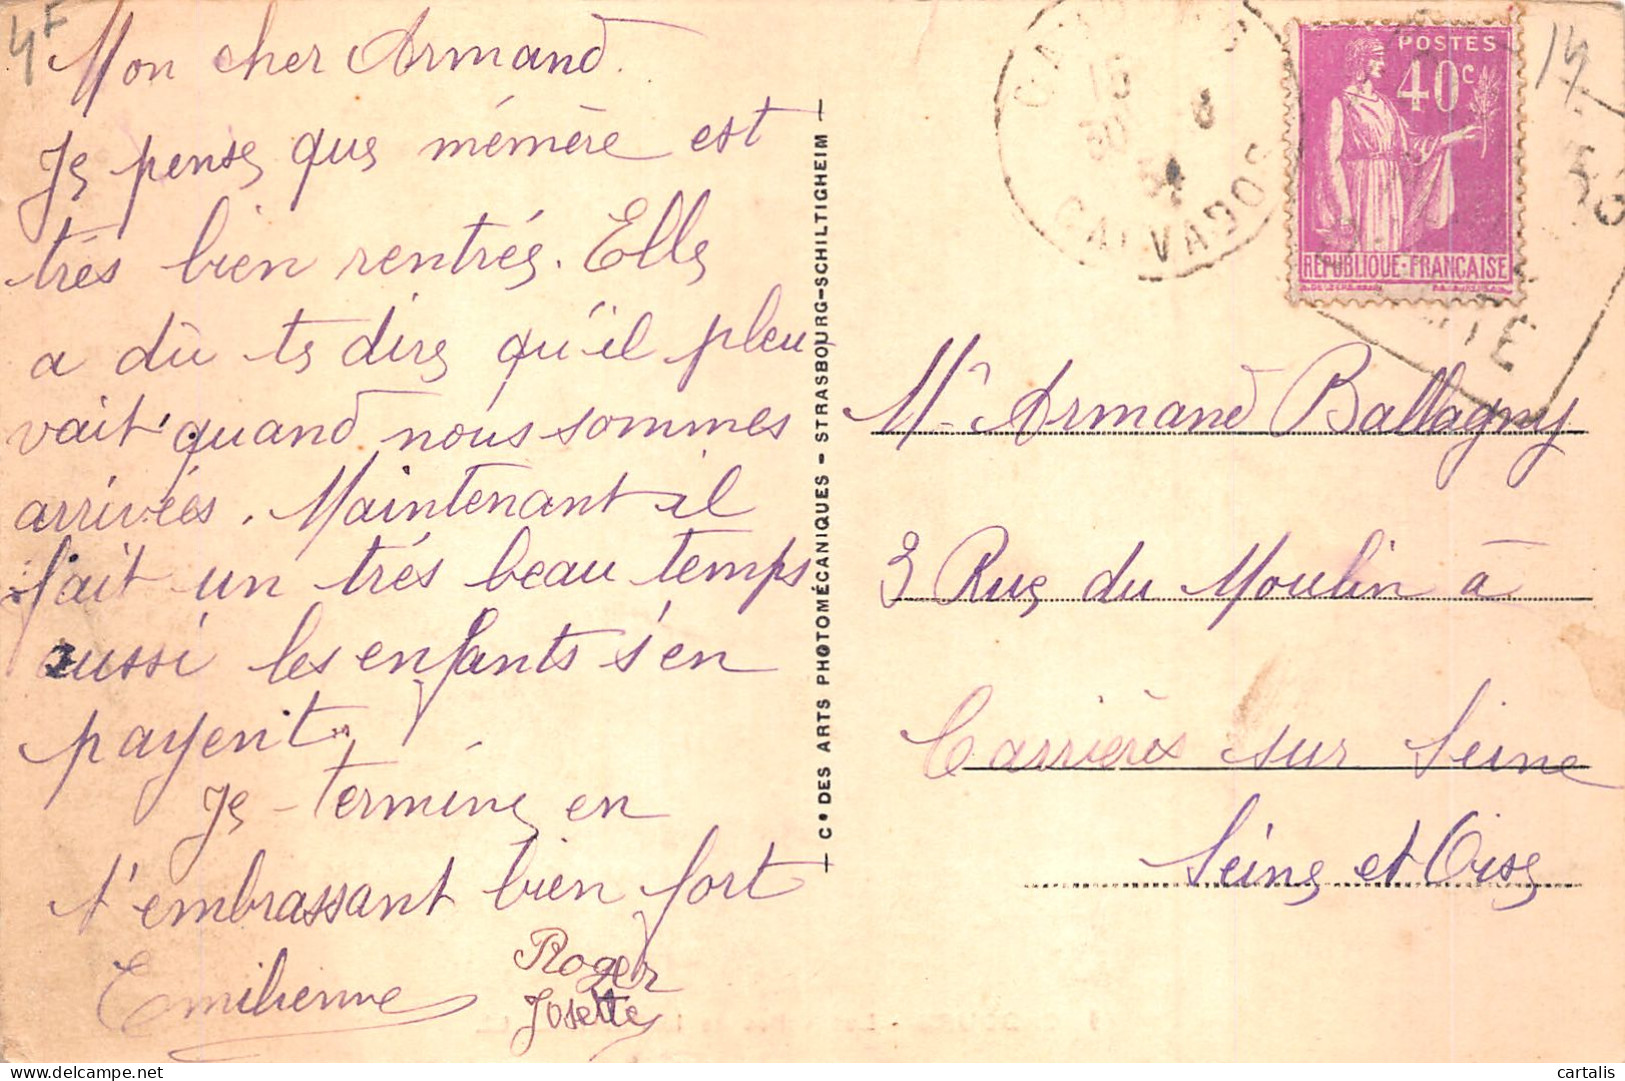 4F
Mon cher Armand.
Je pense que mémère est
très bien rentrée. Elle
a dû te dire qu'il pleu-
vait quand nous sommes
arrivées. Maintenant il
fait un très beau temps
aussi les enfants s'en
payent.
Je termine en
t'embrassant bien fort
Emilienne
Roger
Josette
Cie DES ARTS PHOTOMÉCANIQUES - STRASBOURG-SCHILTIGHEIM
15
30 8
CALVADOS
POSTES
40c
REPUBLIQUE-FRANÇAISE
14
Mr Armand Ballagny
3 Rue du Moulin à
Carrières sur Seine
Seine et Oise
cartalis